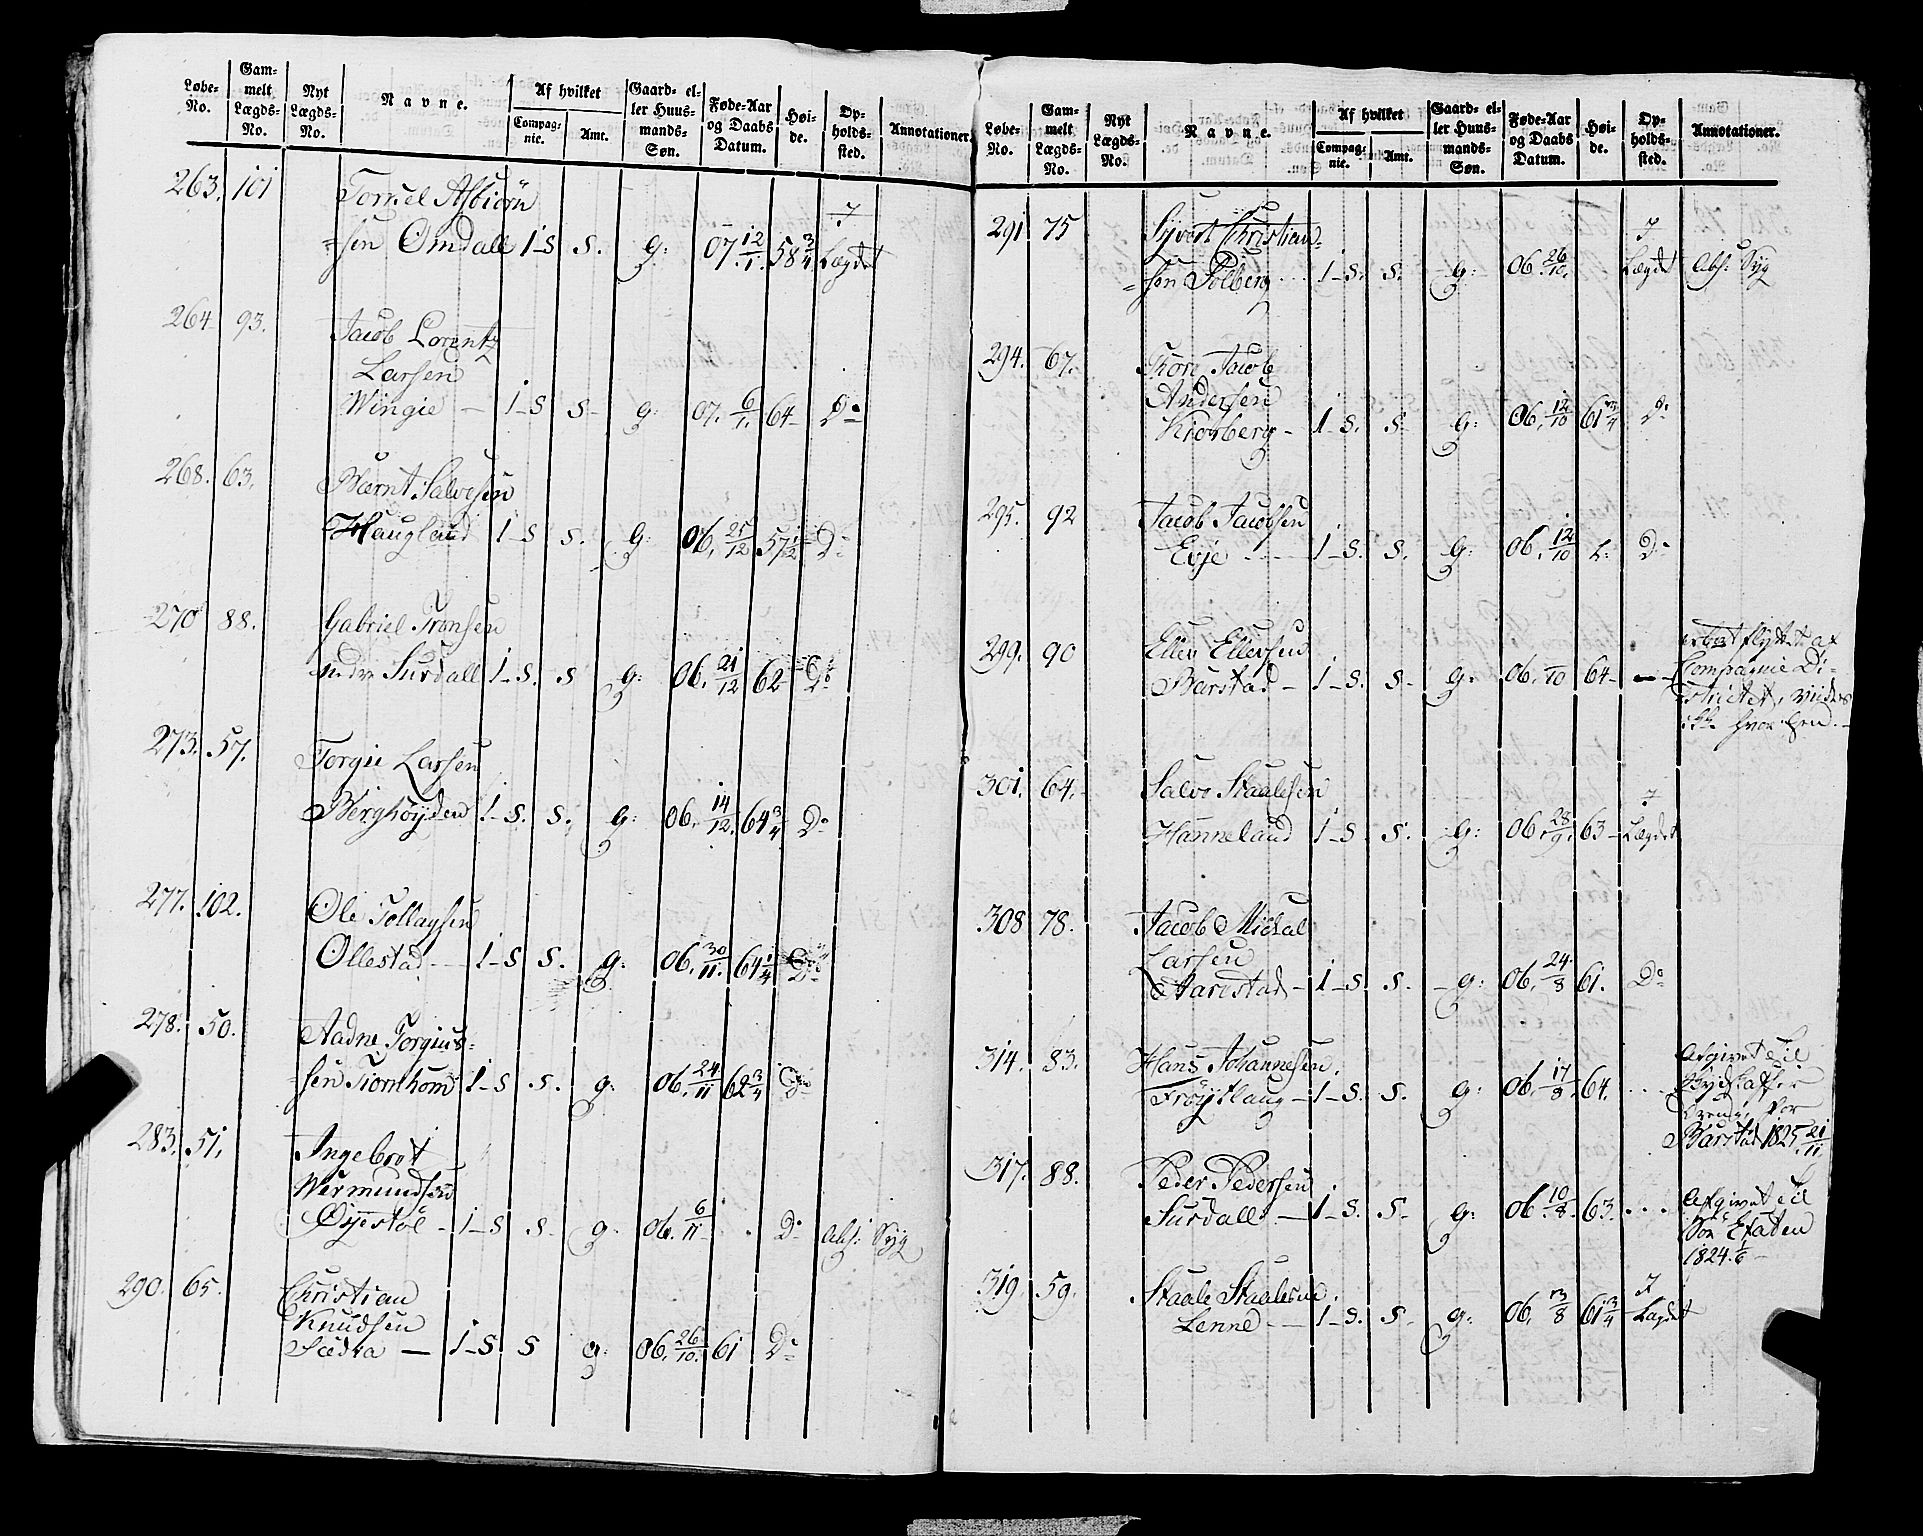 Løbe-No. Gam-melt Lægds-No. Nyt Lægds-No. Navne. Af hvilket Compag-nie. Amt. Gaard- el-ler Huus-mands-Søn. Føde-Aar og Daabs Datum. Høi-de. Op-holds-sted. Annotationer.
263. 101 Torkel Asbiörn
=sen Omdall 1-S S. g: 07. 12/1. 58 3/4 I Lægdet
264 93. Jacob Lorentz
Larsen
Wingie - 1-S S- g: 07. 6/1. 64- Do
268. 63. Bernt Salvesen
Haugland 1-S S. g: 06. 25/12 57 1/2 Do
270 88. Gabriel Tronsen
nedre Surdall 1-S. S g: 06. 21/12 62 Do
273. 57. Torgie Larsen
Berghöyden 1-S. S. g: 06. 14/12. 64 3/4 Do
277. 102. Ole Tollagsen
Ollestad 1-S S. g: 06. 30/11. 64 1/4 Do
278. 50. Aadne Torgius=
=sen Tiomhom 1-S S. g: 06. 24/11 62 3/4 Do
283. 51. Ingebrot
Wermundsen
Öyestöl - 1-S S- g: 06. 6/11 Do Abs: Syg
290. 65. Christian
Knudsen
Sædra - 1-S. S g: 06. 26/10. 61 Do
Løbe-No. Gam-melt Lægds-No. Nyt Lægds-No. Navne. Af hvilket Compag-nie. Amt. Gaard- el-ler Huus-mands-Søn. Føde-Aar og Daabs Datum. Høi-de. Op-holds-sted. Annotationer.
291 75 Syvert Christian=
=sen Solberg 1-S. S. g: 06. 26/10. I Lægdet Abs: Syg
294. 67. Thore Jacob
Andersen
Kiorberg - 1-S. S- g: 06. 12/10 61 3/4 Do
295. 92 Jacob Jacobsen
Evje 1-S. S. g: 06. 12/10 L: Do
299. 90 Ellen Ellefsen
Barstad - 1-S. S- g: 06. /10 64- - flyttet af
Compagnie Di-
strictet, vides
ikke hvor hen.
301. 64. Salve Staalesen
Hanneland 1-S S. g: 06. 28/9. 63- I Lægdet
308 78. Jacob Mickal
Larsen
Aarrestad - 1-S. S. g: 06. 24/8 61. Do
314. 83. Hans Johannesen
Fröytlaug - 1-S. S. g: 06. 17/8. 64. Afgivet til
for
Barstad 1825 21/11.
317. 88. Peder Pedersen
Surdall - 1-S. S- g: 06. 10/8. 63. Afgivet til
Söe Etaten
1824. 1/6
319. 59. Staale Staalesne
Lenne - 1-S. S. g: 06. 3/8 61 3/4 I Lægdet